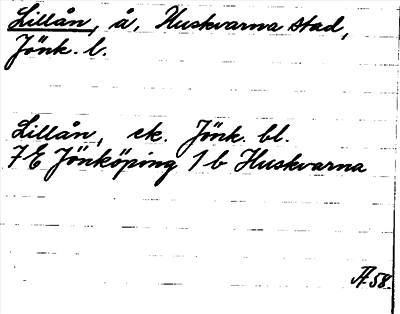 Lillån, å, Huskvarna stad,
Jönk. l.
Lillån, ek. Jönk. bl.
7E Jönköping 1b Huskvarna
Æ 58.